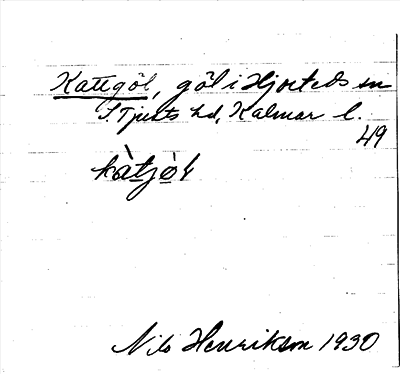 Kattgöl, göl i Hjorteds sn
S. Tjusts hd, Kalmar l.
49
kàtjö̀l
Nils Henrikson 1930